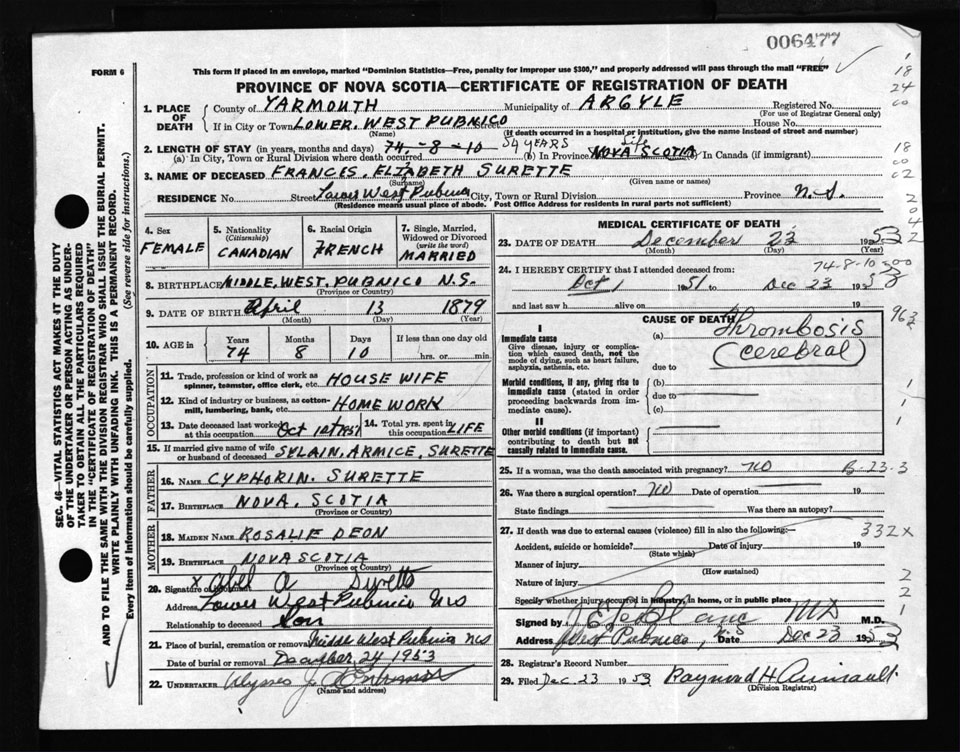 006477
FORM 6
This form if placed in an envelope, marked "Dominion Statistics—Free, penalty for improper use $300," and properly addressed will pass through the mail "FREE"
PROVINCE OF NOVA SCOTIA—CERTIFICATE OF REGISTRATION OF DEATH
1. PLACE OF DEATH County of YARMOUTH Municipality of ARGYLE Registered No.
(For use of Registrar General only)
If in City or Town LOWER. WEST PUBNICO Street House No.
(Name) (If death occurred in a hospital or institution, give the name instead of street and number)
2. LENGTH OF STAY (in years, months and days) 74.-8-10 54 YEARS life
(a) In City, Town or Rural Division where death occurred (b) In Province NOVA SCOTIA (c) In Canada (if immigrant)
3. NAME OF DECEASED FRANCES. ELIZABETH SURETTE
(Surname) (Given name or names)
RESIDENCE No. Street Lower West Pubnico City, Town or Rural Division Province N.S.
(Residence means usual place of abode. Post Office Address for residents in rural parts not sufficient)
4. Sex FEMALE
5. Nationality (Citizenship) CANADIAN
6. Racial Origin FRENCH
7. Single, Married, Widowed or Divorced (write the word) MARRIED
8. BIRTHPLACE MIDDLE. WEST. PUBNICO N.S.
(Province or Country)
9. DATE OF BIRTH April 13 1879
(Month) (Day) (Year)
10. AGE in Years Months Days If less than one day old
74 8 10 hrs. or min.
OCCUPATION
11. Trade, profession or kind of work as spinner, teamster, office clerk, etc. HOUSE WIFE
12. Kind of industry or business, as cotton-mill, lumbering, bank, etc. HOME WORK
13. Date deceased last worked at this occupation Oct 1st 1951
14. Total yrs. spent in this occupation LIFE
15. If married give name of wife or husband of deceased SYLAIN. ARMICE, SURETTE
FATHER
16. NAME CYPHORIN. SURETTE
17. BIRTHPLACE NOVA. SCOTIA
(Province or Country)
MOTHER
18. MAIDEN NAME ROSALIE DEON
19. BIRTHPLACE NOVA SCOTIA
(Province or Country)
20. Signature of informant x Abel A Surette
Address Lower West Pubnico N S
Relationship to deceased Son
21. Place of burial, cremation or removal Middle West Pubnico N S
Date of burial or removal December 24, 1953
22. UNDERTAKER Ulysses J. D'Entremont
(Name and address)
MEDICAL CERTIFICATE OF DEATH
23. DATE OF DEATH December 23 1953
(Month) (Day)
74-8-10
24. I HEREBY CERTIFY that I attended deceased from:
Oct 1 1951 to Dec 23 1953
and last saw h alive on 19
CAUSE OF DEATH
I
Immediate cause
Give disease, injury or complication which caused death, not the mode of dying, such as heart failure, asphyxia, asthenia, etc.
(a) Thrombosis
(cerebral)
due to
Morbid conditions, if any, giving rise to immediate cause (stated in order proceeding backwards from immediate cause).
(b)
due to
(c)
II
Other morbid conditions (if important) contributing to death but not causally related to immediate cause.
25. If a woman, was the death associated with pregnancy? NO B-23-3
26. Was there a surgical operation? NO Date of operation 19
State findings Was there an autopsy?
27. If death was due to external causes (violence) fill in also the following:— 332X
Accident, suicide or homicide? Date of injury 19
(State which)
Manner of injury
(How sustained)
Nature of injury
Specify whether injury occurred in industry, in home, or in public place
Signed by J E LeBlanc MD M.D.
Address West Pubnico, N.S Dec 23 1953
28. Registrar's Record Number
29. Filed Dec. 23 1953 Raymond H Amirault
(Division Registrar)
SEC. 46—VITAL STATISTICS ACT MAKES IT THE DUTY
OF THE UNDERTAKER OR PERSON ACTING AS UNDER-
TAKER TO OBTAIN ALL THE PARTICULARS REQUIRED
IN THE "CERTIFICATE OF REGISTRATION OF DEATH"
AND TO FILE THE SAME WITH THE DIVISION REGISTRAR WHO SHALL ISSUE THE BURIAL PERMIT.
WRITE PLAINLY WITH UNFADING INK. THIS IS A PERMANENT RECORD.
Every item of Information should be carefully supplied. (See reverse side for instructions.)